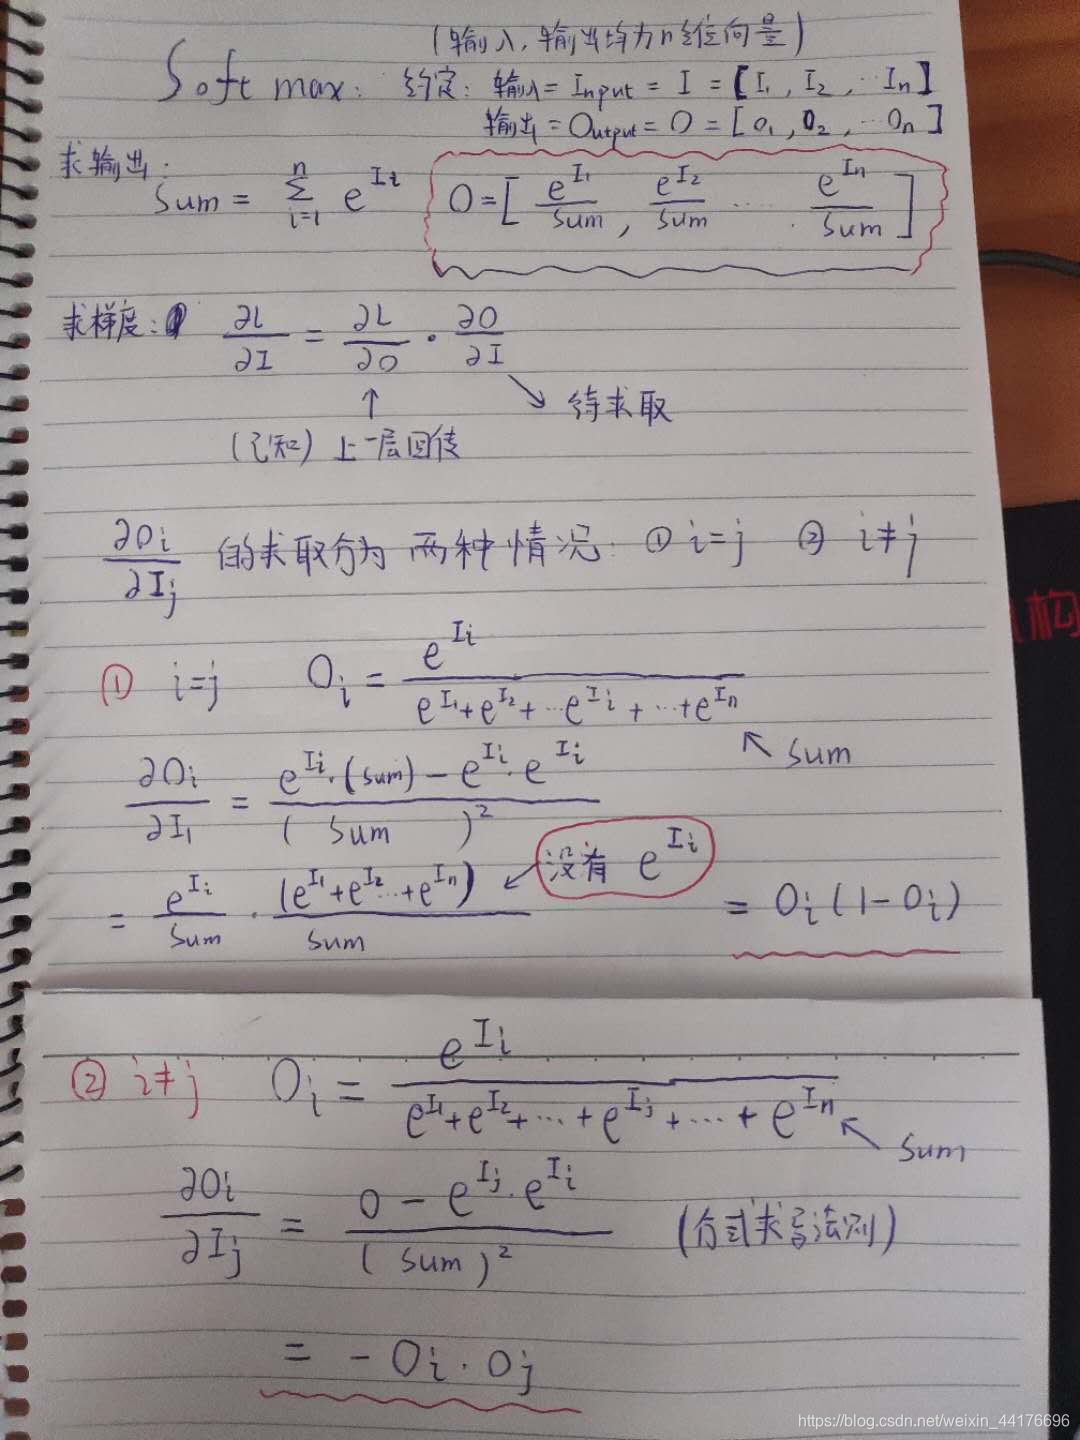 (输入,输出均为n维向量)
Softmax: 约定: 输入=Input = I = [I₁, I₂, ⋯Iₙ]
输出=Output = O = [O₁, O₂, ⋯Oₙ]
求输出:
Sum = ∑ᵢ₌₁ⁿ e^{Iᵢ} O=[ e^{I₁}/Sum, e^{I₂}/Sum ⋯ e^{Iₙ}/Sum ]
求梯度: ∂L/∂I = ∂L/∂O · ∂O/∂I
↑ ↘ 待求取
(已知) 上一层回传
∂Oᵢ/∂Iⱼ 的求取分为 两种情况: ① i=j ② i≠j
① i=j Oᵢ = e^{Iᵢ}/(e^{I₁}+e^{I₂}+⋯e^{Iᵢ}+⋯+e^{Iₙ})
↖ Sum
∂Oᵢ/∂I₁ = (e^{Iᵢ}·(sum) − e^{Iᵢ}·e^{Iᵢ})/(Sum)²
没有 e^{Iᵢ}
= e^{Iᵢ}/Sum · (e^{I₁}+e^{I₂}⋯+e^{Iₙ})/Sum = Oᵢ(1−Oᵢ)
② i≠j Oᵢ = e^{Iᵢ}/(e^{I₁}+e^{I₂}+⋯+e^{Iⱼ}+⋯+e^{Iₙ})
↖ Sum
∂Oᵢ/∂Iⱼ = (0 − e^{Iⱼ}·e^{Iᵢ})/(Sum)² (分式求导法则)
= −Oᵢ·Oⱼ
构
https://blog.csdn.net/weixin_44176696